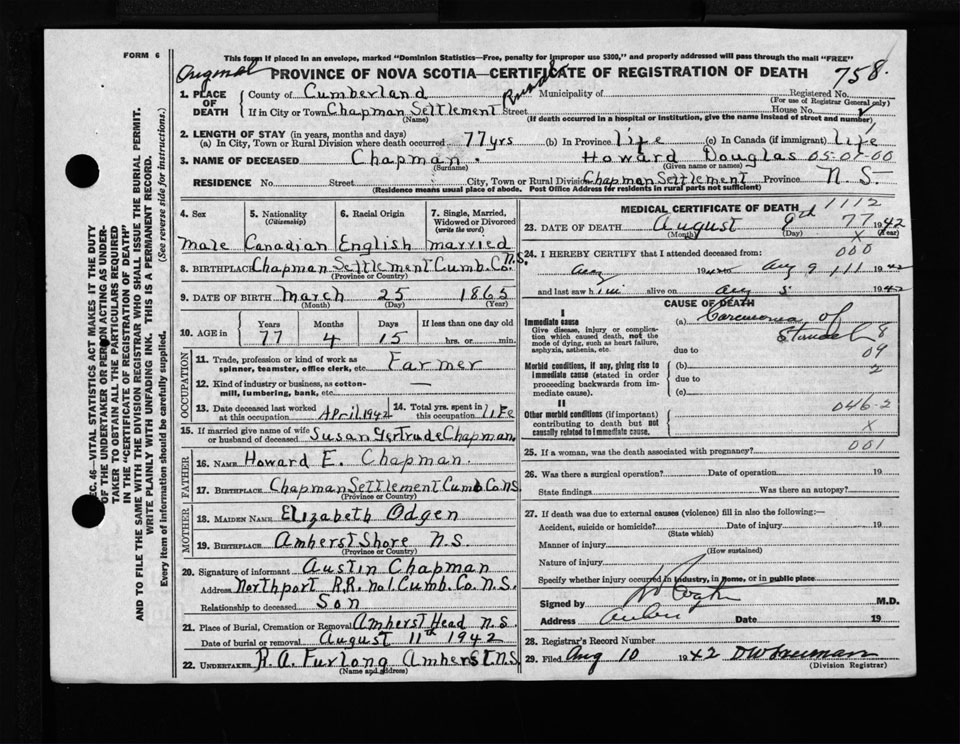 FORM 6
This form if placed in an envelope, marked "Dominion Statistics—Free, penalty for improper use $300," and properly addressed will pass through the mail "FREE"
Original PROVINCE OF NOVA SCOTIA—CERTIFICATE OF REGISTRATION OF DEATH 758.
1. PLACE OF DEATH County of Cumberland Municipality of Registered No.
(For use of Registrar General only)
If in City or Town Chapman Settlement Street Rural House No.
(Name) (If death occurred in a hospital or institution, give the name instead of street and number)
2. LENGTH OF STAY (in years, months and days)
(a) In City, Town or Rural Division where death occurred 77 yrs (b) In Province life (c) In Canada (if immigrant) life
3. NAME OF DECEASED Chapman. Howard Douglas 05-01-00
(Surname) (Given name or names)
RESIDENCE No. Street City, Town or Rural Division Chapman Settlement Province N.S.
(Residence means usual place of abode. Post Office Address for residents in rural parts not sufficient)
4. Sex 5. Nationality (Citizenship) 6. Racial Origin 7. Single, Married, Widowed or Divorced (write the word)
male Canadian English married
8. BIRTHPLACE Chapman Settlement Cumb. Co. N.S.
(Province or Country)
9. DATE OF BIRTH March 25 1865
(Month) (Day) (Year)
10. AGE in Years Months Days If less than one day old
77 4 15 hrs. or min.
OCCUPATION
11. Trade, profession or kind of work as spinner, teamster, office clerk, etc. Farmer
12. Kind of industry or business, as cotton-mill, lumbering, bank, etc. —
13. Date deceased last worked at this occupation April 1942 14. Total yrs. spent in this occupation life
15. If married give name of wife or husband of deceased Susan Gertrude Chapman
FATHER
16. NAME Howard E. Chapman.
17. BIRTHPLACE Chapman Settlement Cumb. Co. N.S.
(Province or Country)
MOTHER
18. MAIDEN NAME Elizabeth Odgen
19. BIRTHPLACE Amherst Shore N.S.
(Province or Country)
20. Signature of informant Austin Chapman
Address Northport R.R. no1. Cumb. Co. N.S.
Relationship to deceased Son
21. Place of Burial, Cremation or Removal Amherst Head N.S.
Date of burial or removal August 11th 1942
22. UNDERTAKER H. A. Furlong Amherst N.S.
(Name and address)
MEDICAL CERTIFICATE OF DEATH 1112
23. DATE OF DEATH August 9th 77 1942
(Month) (Day) X (Year)
24. I HEREBY CERTIFY that I attended deceased from: 000
Aug 9 111 1942
and last saw him alive on Aug 5 1942
CAUSE OF DEATH
I
Immediate cause (a) Carcinoma of
Give disease, injury or complication which caused death, not the mode of dying, such as heart failure, asphyxia, asthenia, etc.
Stomach 8
due to 09
Morbid conditions, if any, giving rise to immediate cause (stated in order proceeding backwards from immediate cause).
(b) 2
due to
(c)
II
Other morbid conditions (if important) contributing to death but not causally related to immediate cause.
046-2
X
25. If a woman, was the death associated with pregnancy? 001
26. Was there a surgical operation? Date of operation 19
State findings Was there an autopsy?
27. If death was due to external causes (violence) fill in also the following:—
Accident, suicide or homicide? Date of injury 19
(State which)
Manner of injury
(How sustained)
Nature of injury
Specify whether injury occurred in industry, in home, or in public place
Signed by M.D.
Address Date 19
28. Registrar's Record Number
29. Filed Aug 10 1942
(Division Registrar)
SEC. 46—VITAL STATISTICS ACT MAKES IT THE DUTY
OF THE UNDERTAKER OR PERSON ACTING AS UNDER-
TAKER TO OBTAIN ALL THE PARTICULARS REQUIRED
IN THE "CERTIFICATE OF REGISTRATION OF DEATH"
AND TO FILE THE SAME WITH THE DIVISION REGISTRAR WHO SHALL ISSUE THE BURIAL PERMIT.
WRITE PLAINLY WITH UNFADING INK. THIS IS A PERMANENT RECORD.
Every item of information should be carefully supplied. (See reverse side for instructions.)